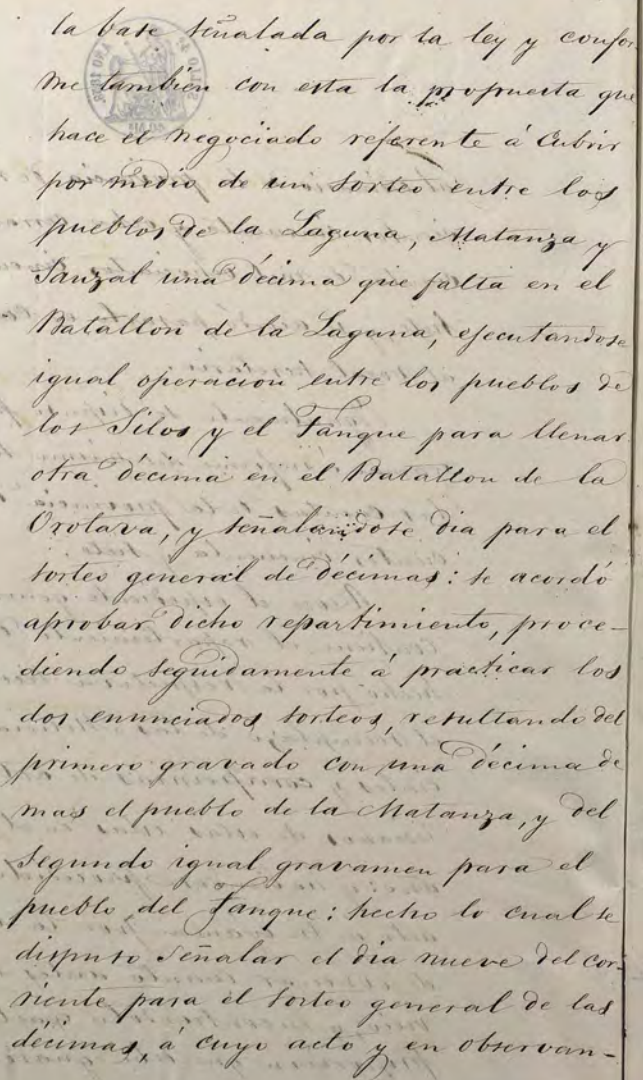 la base señalada por la ley y confor
me también con esta la propuesta que
hace el negociado referente á Cubrir
por medio de un sorteo entre los
pueblos de la Laguna, Matanza y
Sauzal una décima que falta en el
Batallon de la Laguna, ejecutandose
igual operacion entre los pueblos de
los Silos y el Tanque para llenar
otra décima en el Batallon de la
Orotava, y señalandose dia para el
sorteo general de décimas: se acordó
aprobar dicho repartimiento, proce-
diendo seguidamente á practicar los
dos enunciados sorteos, resultando del
primero gravado con una décima de
mas el pueblo de la Matanza, y del
segundo igual gravamen para el
pueblo del Tanque: hecho lo cual se
dispuso señalar el dia nueve del cor-
riente para el sorteo general de las
décimas, á cuyo acto y en observan-